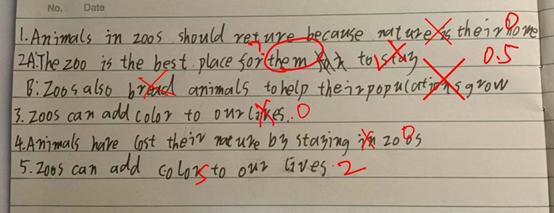 No. Date
1. Animals in zoos should reture because nature is their home 0
2A: The zoo is the best place for them to stay 0.5
B: Zoos also bread animals to help their populations grow
3. Zoos can add color to our lives. 0
4. Animals have lost their nature by stazing in zoos 0
5. Zoos can add colors to our lives. 2